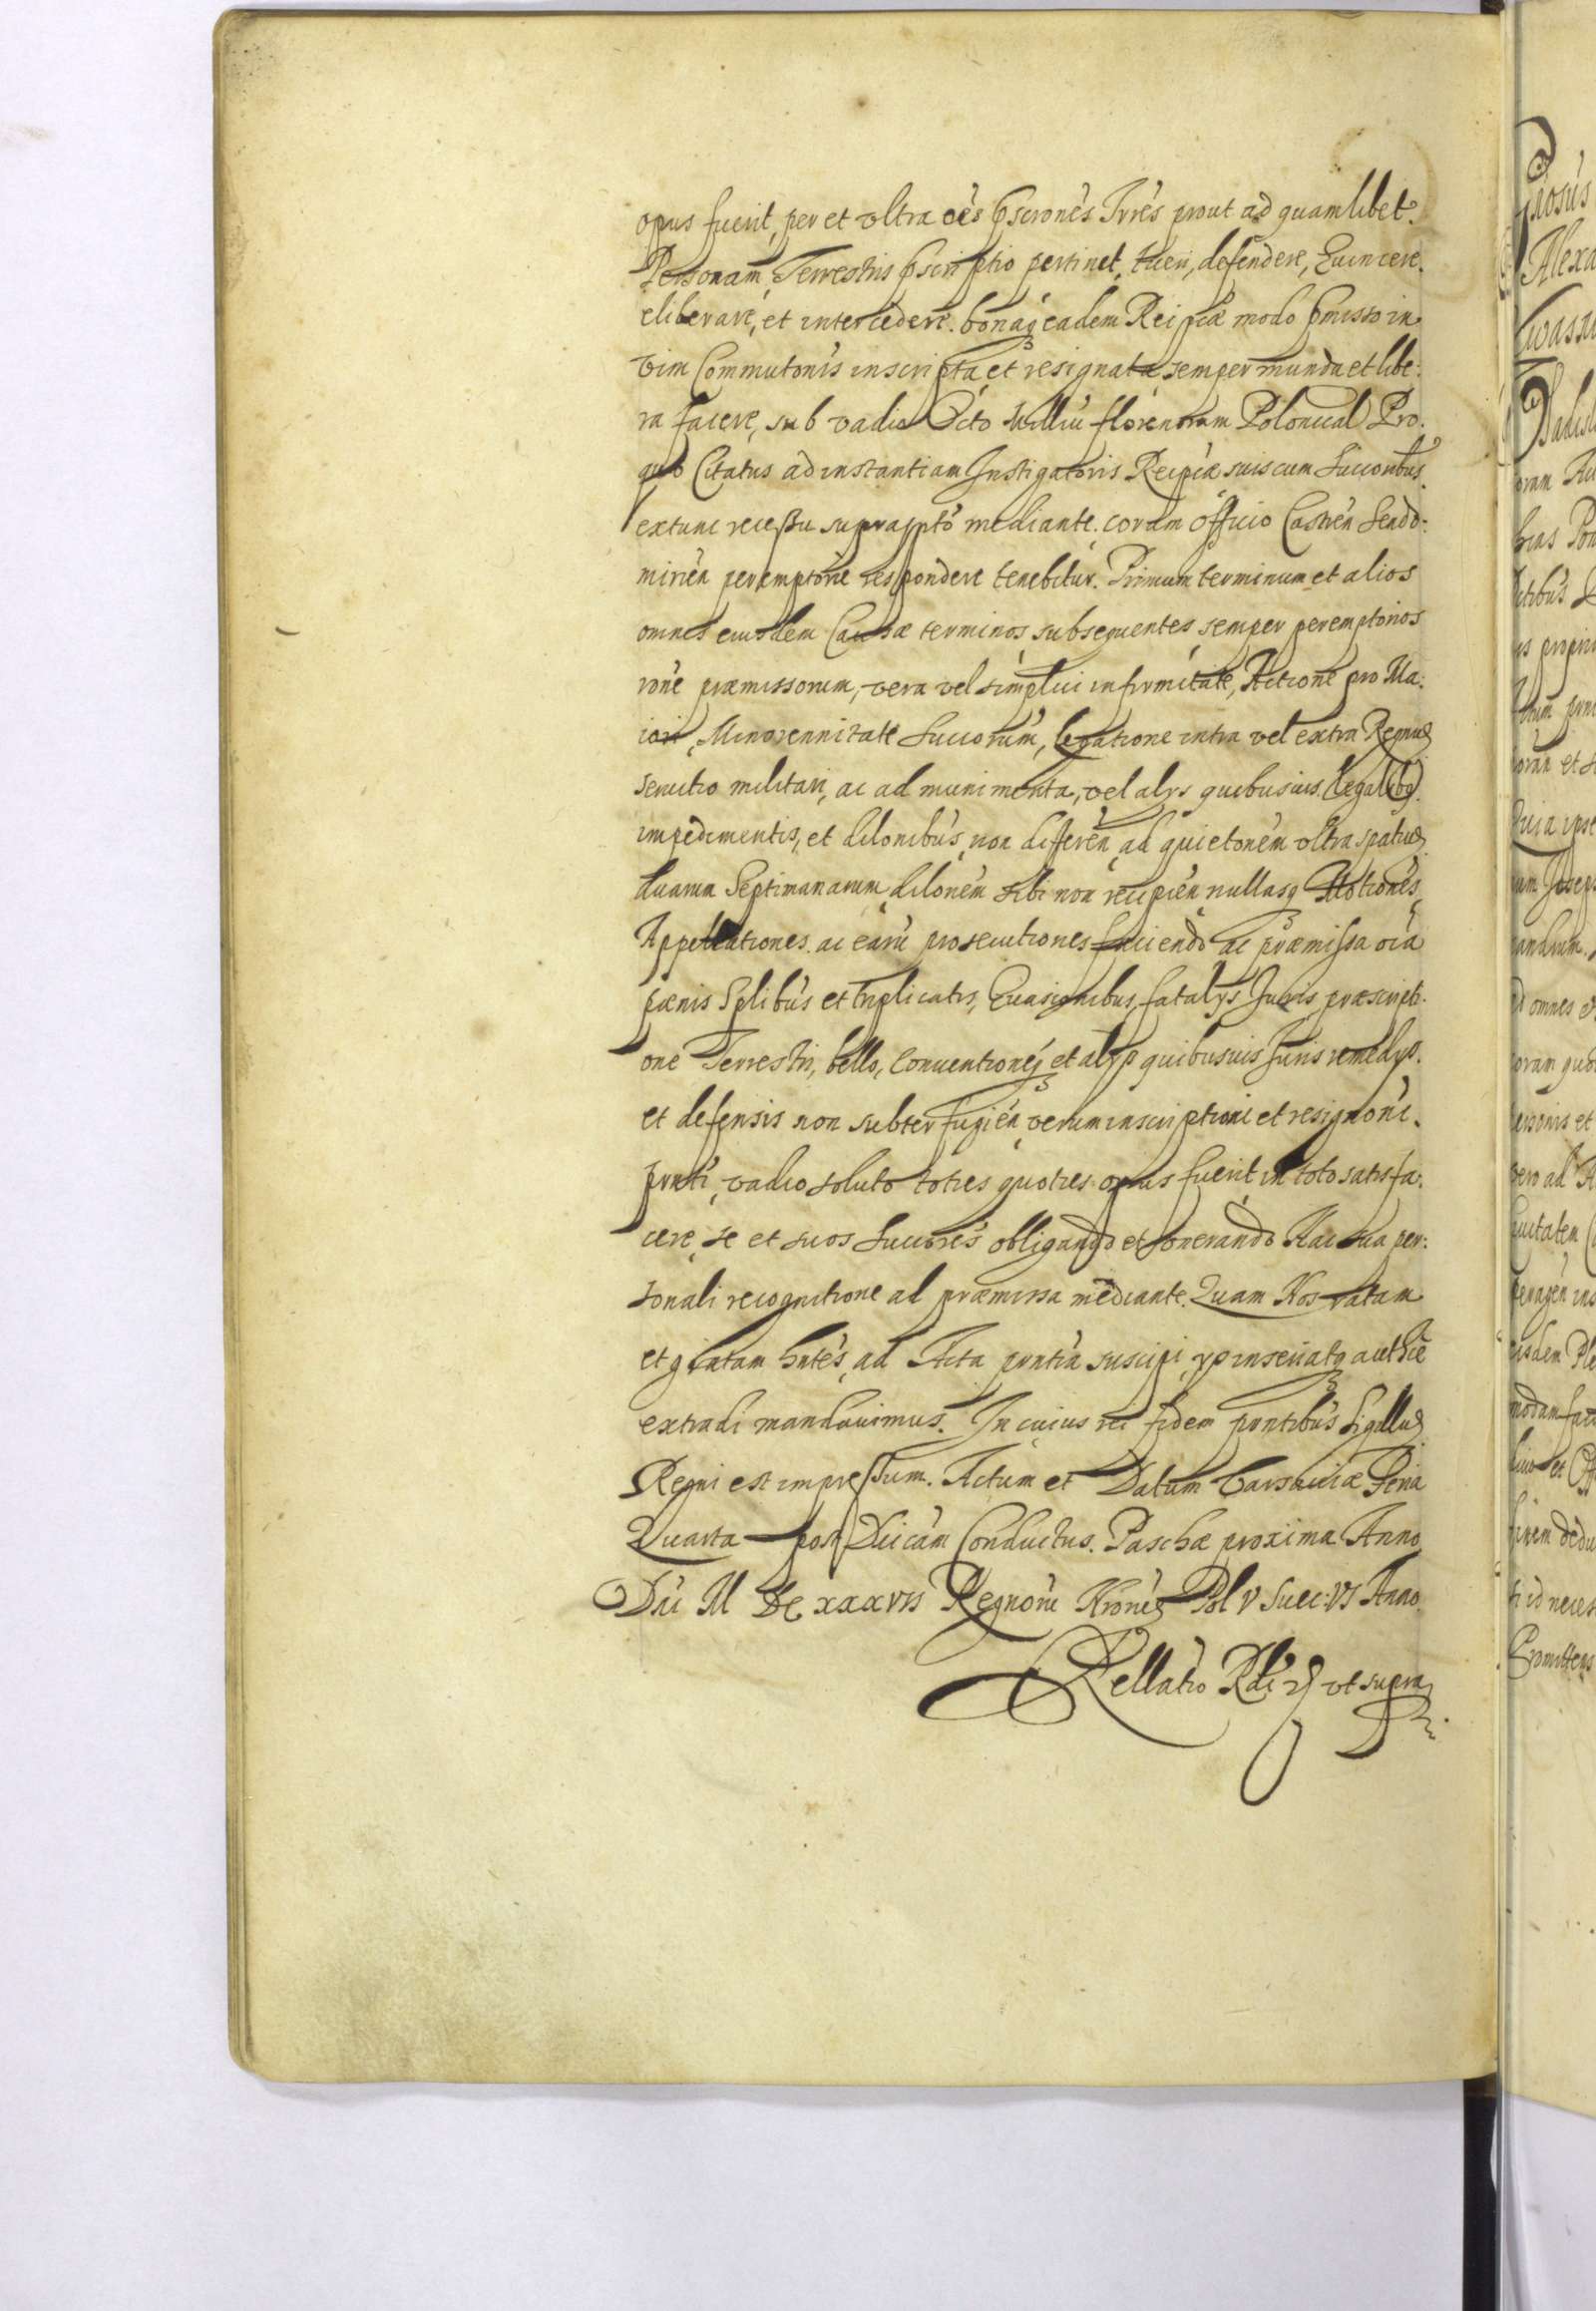 opus fuerit, per et vltra oēs p̄scronēs Trrēs prout ad quamlibet
Personam Terrestris p̄scriptio pertinet, tueri, defendere, Euincere,
eliberare, et intercedere. bonaq̢ eadem Reipcæ modo p̄misso in
vim Commutonis inscripta et resignata semper munda et libe:
ra facere, sub vadio Octo Milliū florenorum Polonical Pro
quo Citatus ad instantiam Instigatoris Reipcæ suis cum Succoribus
extunc recessu suprapptō mediante coram officio Castren Sendo:
mirien peremptorie respondere tenebitur. Primum terminum et alios
omnes eiusdem Causæ terminos subsequentes semper peremptorios
rone præmissorum, vera vel simplici infirmitate, Actione pro Ma:
iori, Minorennitate Succorum, legatione intra vel extra Regnuꝫ
seruitio militari, ac ad munimenta, vel alys quibusuis legalibꝗ
impedimentis, et dilonibus non differēn ad quietonem vltra spatiuꝫ
duarum Septimanarum dilonēm sibi non recipien nullasq̢ Motiones
Appellationes ac earū prosecutiones faciendo ac præmissa oīa
pænis Splibus et triplicatis, Euasionibus, fatalys Juris præscripti:
one Terrestri, bello, Conuentioneq̢ et alys quibusuis Juris remedys
et defensis non subterfugiēn verum inscriptioni et resignoni
prnti, vadio soluto toties quoties opus fuerit in toto satisfa:
cere se et suos Succores obligando et onerando Hac sua per:
sonali recognitione ad præmissa mediante. Quam Nos ratam
et gratam hntes, ad Acta prntia suscipi, ysinseriatq̢ authce
extradi mandauimus. In cuius rei fidem prntibus Sigilluꝫ
Regni est impressum. Actum et Datum Varsauiæ Feria
Quarta post Dnicam Conductus Paschæ proxima Anno
Dni M DC xxxvii Regnorū Nronꝫ Pol V Suec: VI Anno
Rellatio Rdi ꝫ vt supra